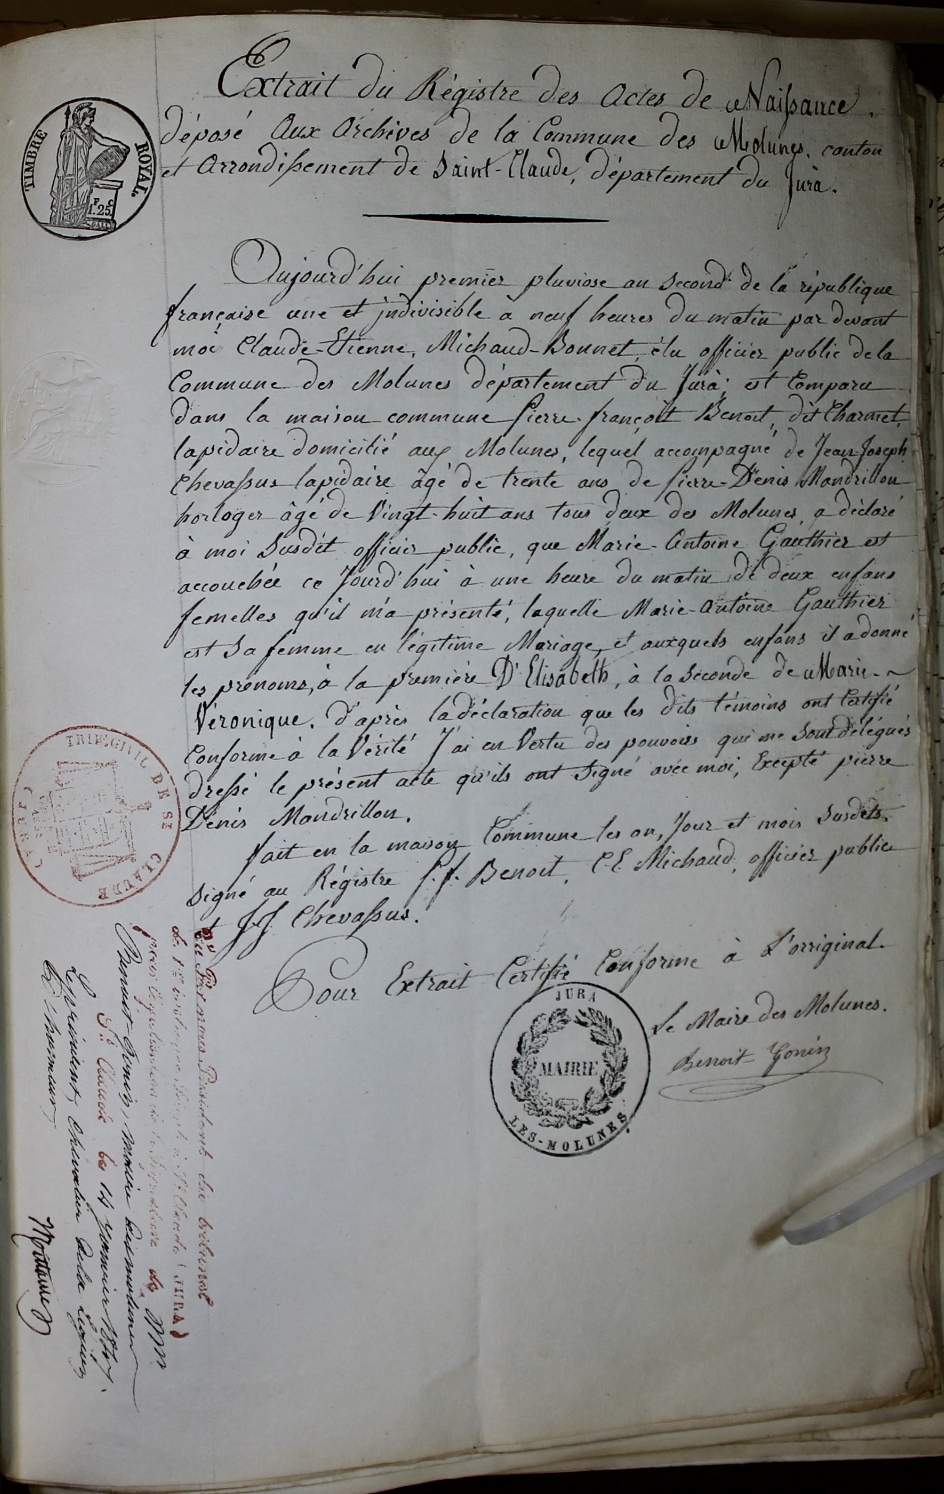 Extrait du Régistre des Actes de Naissance,
déposé Aux Archives de la Commune des Molunes, canton
et Arrondissement de Saint-Claude, département du Jura.
TIMBRE ROYAL.
F C
1.25
Aujourd'hui premier pluviose an second de la république
française une et indivisible à neuf heures du matin par devant
moi Claude-Etienne, Michaud-Bonnet, élu officier public de la
Commune des Molunes département du Jura; est Comparu
dans la maison commune pierre-françoit Benoit, dit Charmet,
lapidaire domicilié aux Molunes, lequel accompagné de Jean-Joseph
Chevassus lapidaire âgé de trente ans de pierre-Denis Mandrillon
horloger âgé de Vingt-huit ans tous deux des Molunes, a déclaré
à moi Susdit officier public, que Marie-Antoine Gauthier est
accouchée ce Jourd'hui à une heure du matin de deux enfans
femelles qu'il m'a présenté, laquelle Marie-Antoine Gauthier
est Sa femme en légitime Mariage, et auxquels enfans il a donné
les prénoms, à la première D'Elisabeth, à la Seconde de Marie-
Véronique. D'après la déclaration que les dits témoins ont Certifié
Conforme à la Vérité J'ai en Vertu des pouvoirs qui me Sont délégués
dressé le présent acte qu'ils ont Signé avec moi, Excepté pierre
Denis Mandrillon.
fait en la maison Commune les an, Jour et mois Susdits.
Signé au Régistre p.f. Benoit, C.E. Michaud, officier public
et J.J Chevassus.
Pour Extrait Certifié Conforme à L'orriginal.
Le Maire des Molunes.
Benoit Gonin
JURA
MAIRIE
LES-MOLUNES
TRIB. CIVIL DE ST CLAUDE
(JURA)
Vu par nous Président du tribunal
de 1re instance séant à St Claude (JURA)
pour légalisation de la signature de Mr
Benoit-Gonin, maire des molunes
St Claude le 14 Janvier
Le président, chevalier de la Légion
d'honneur